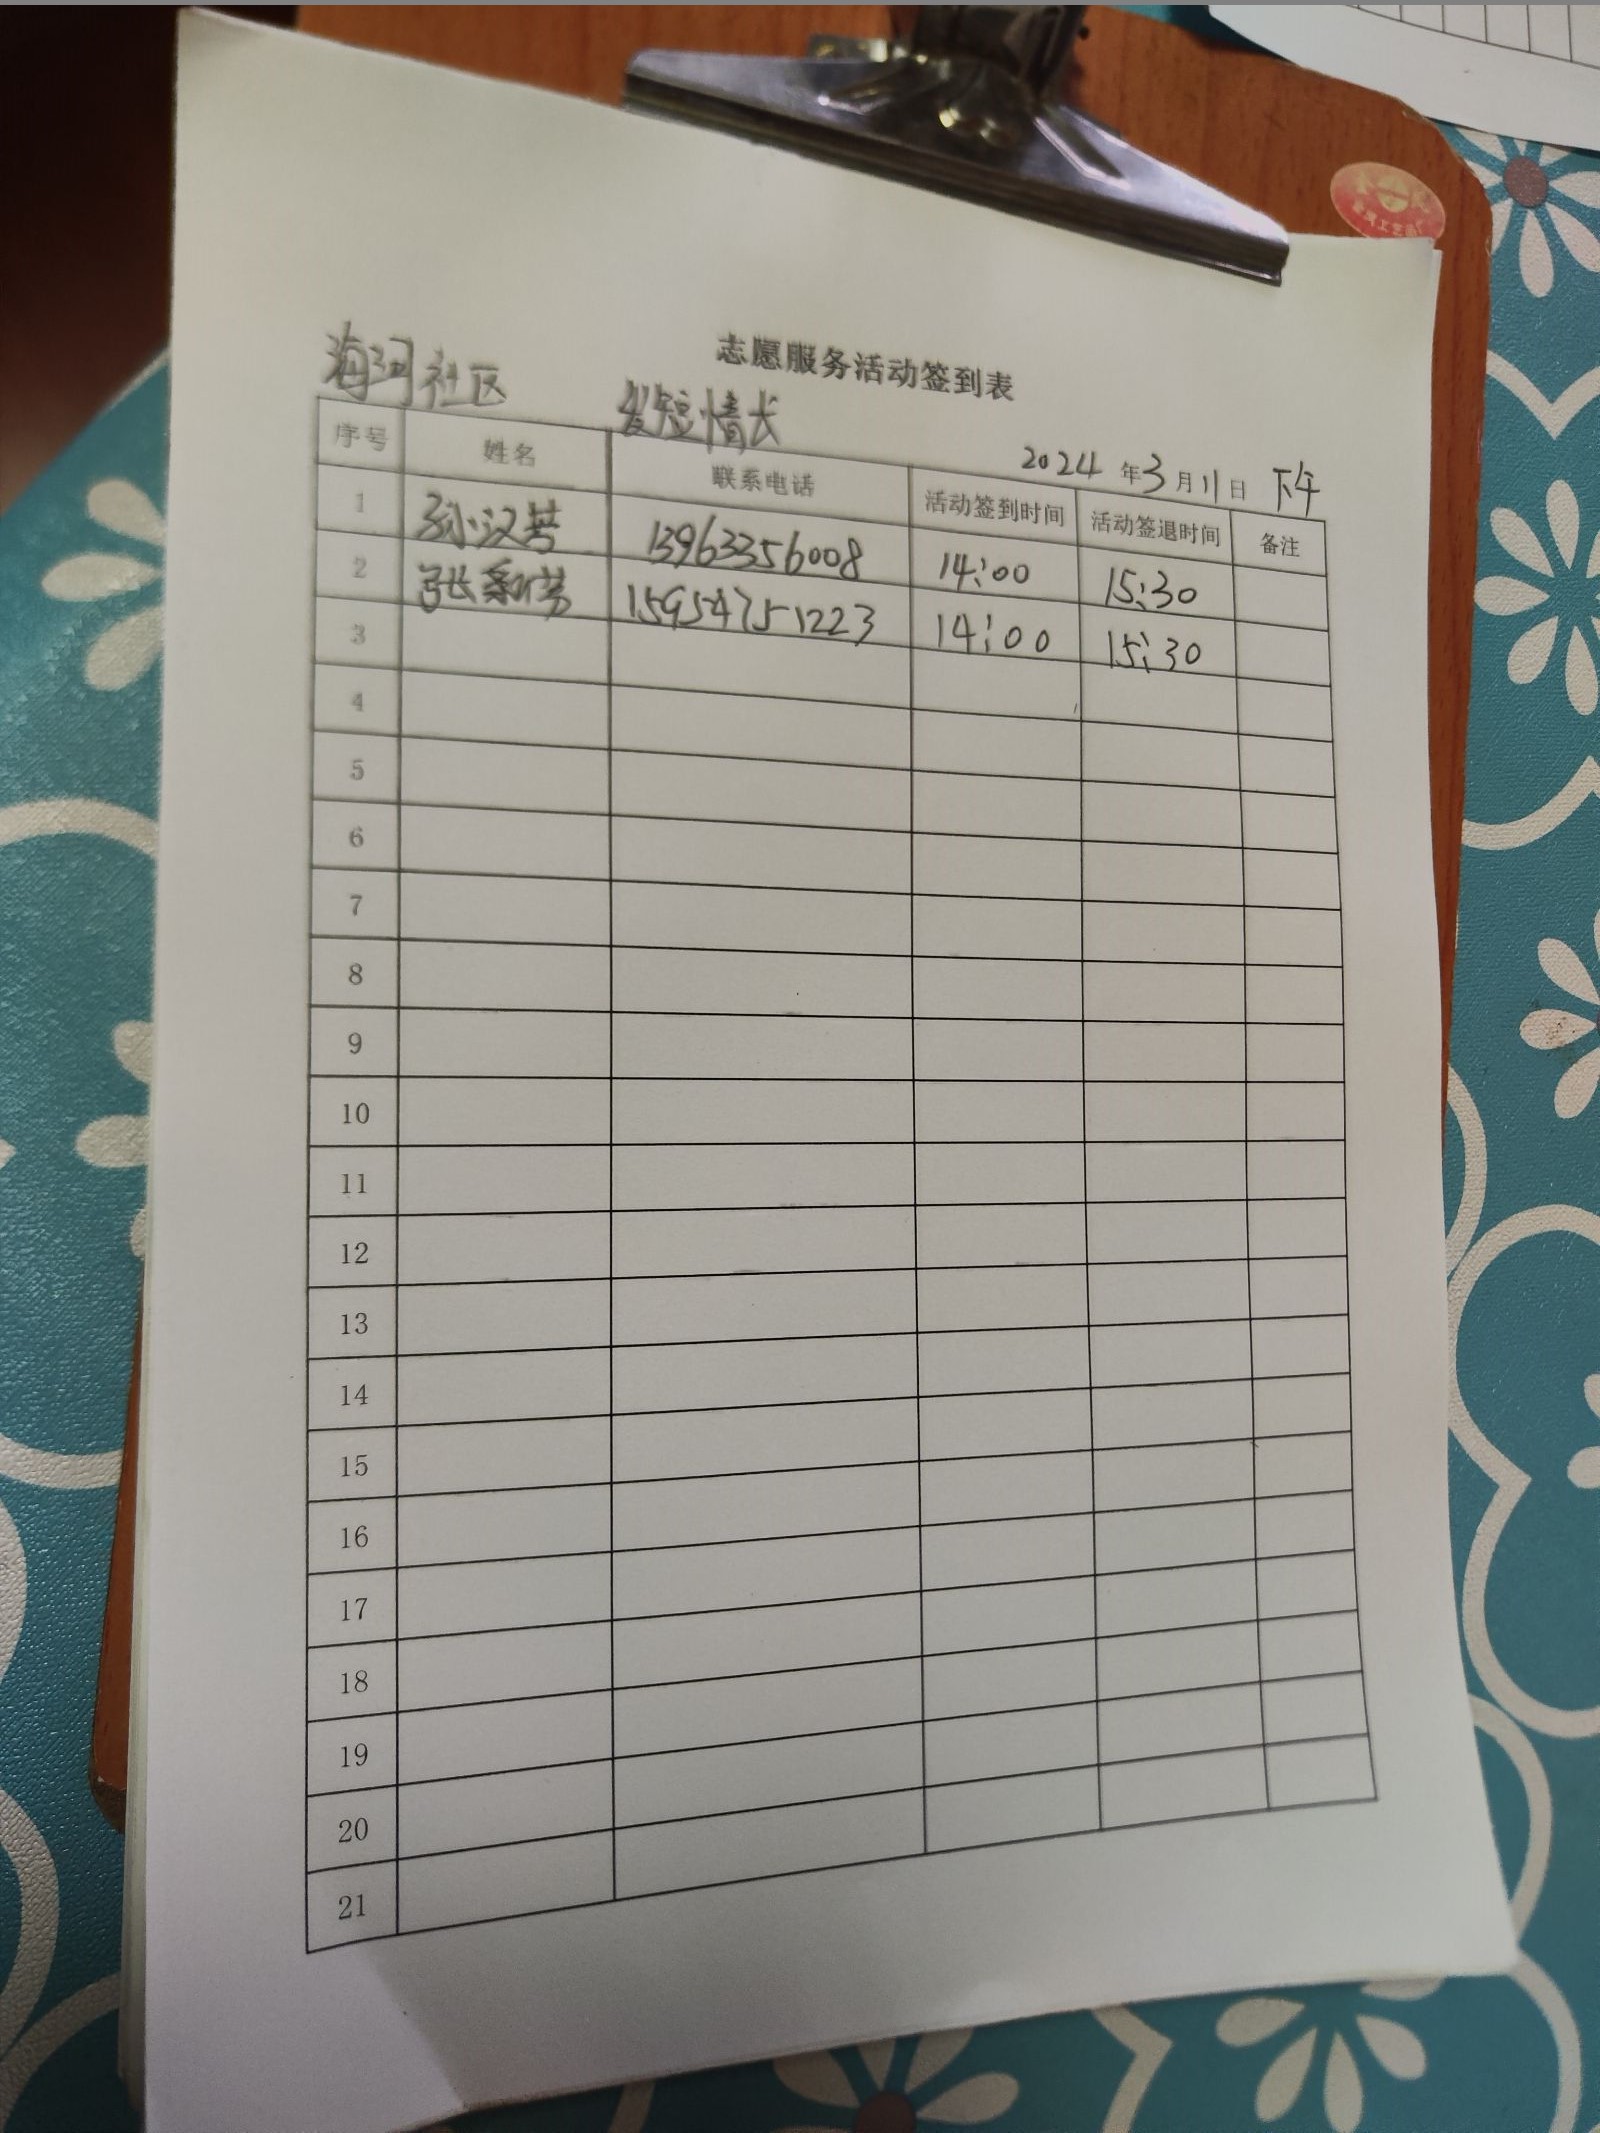 志愿服务活动签到表
海河社区 发短情长 2024年3月11日 下午
序号 姓名 联系电话 活动签到时间 活动签退时间 备注
1 孙汉英 13963356008 14:00 15:30
2 张新芳 15954751223 14:00 15:30
3
4
5
6
7
8
9
10
11
12
13
14
15
16
17
18
19
20
21